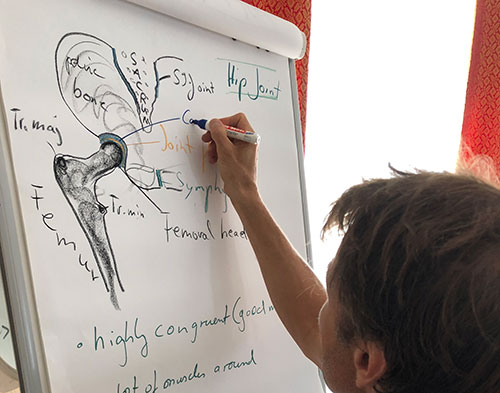 Hip Joint
SACRUM
SI Joint
pelvic
bone
Co
Tr. maj
Joint
Symph
Tr. min
Femoral head
Femur
• highly congruent (good m
lot of muscles around